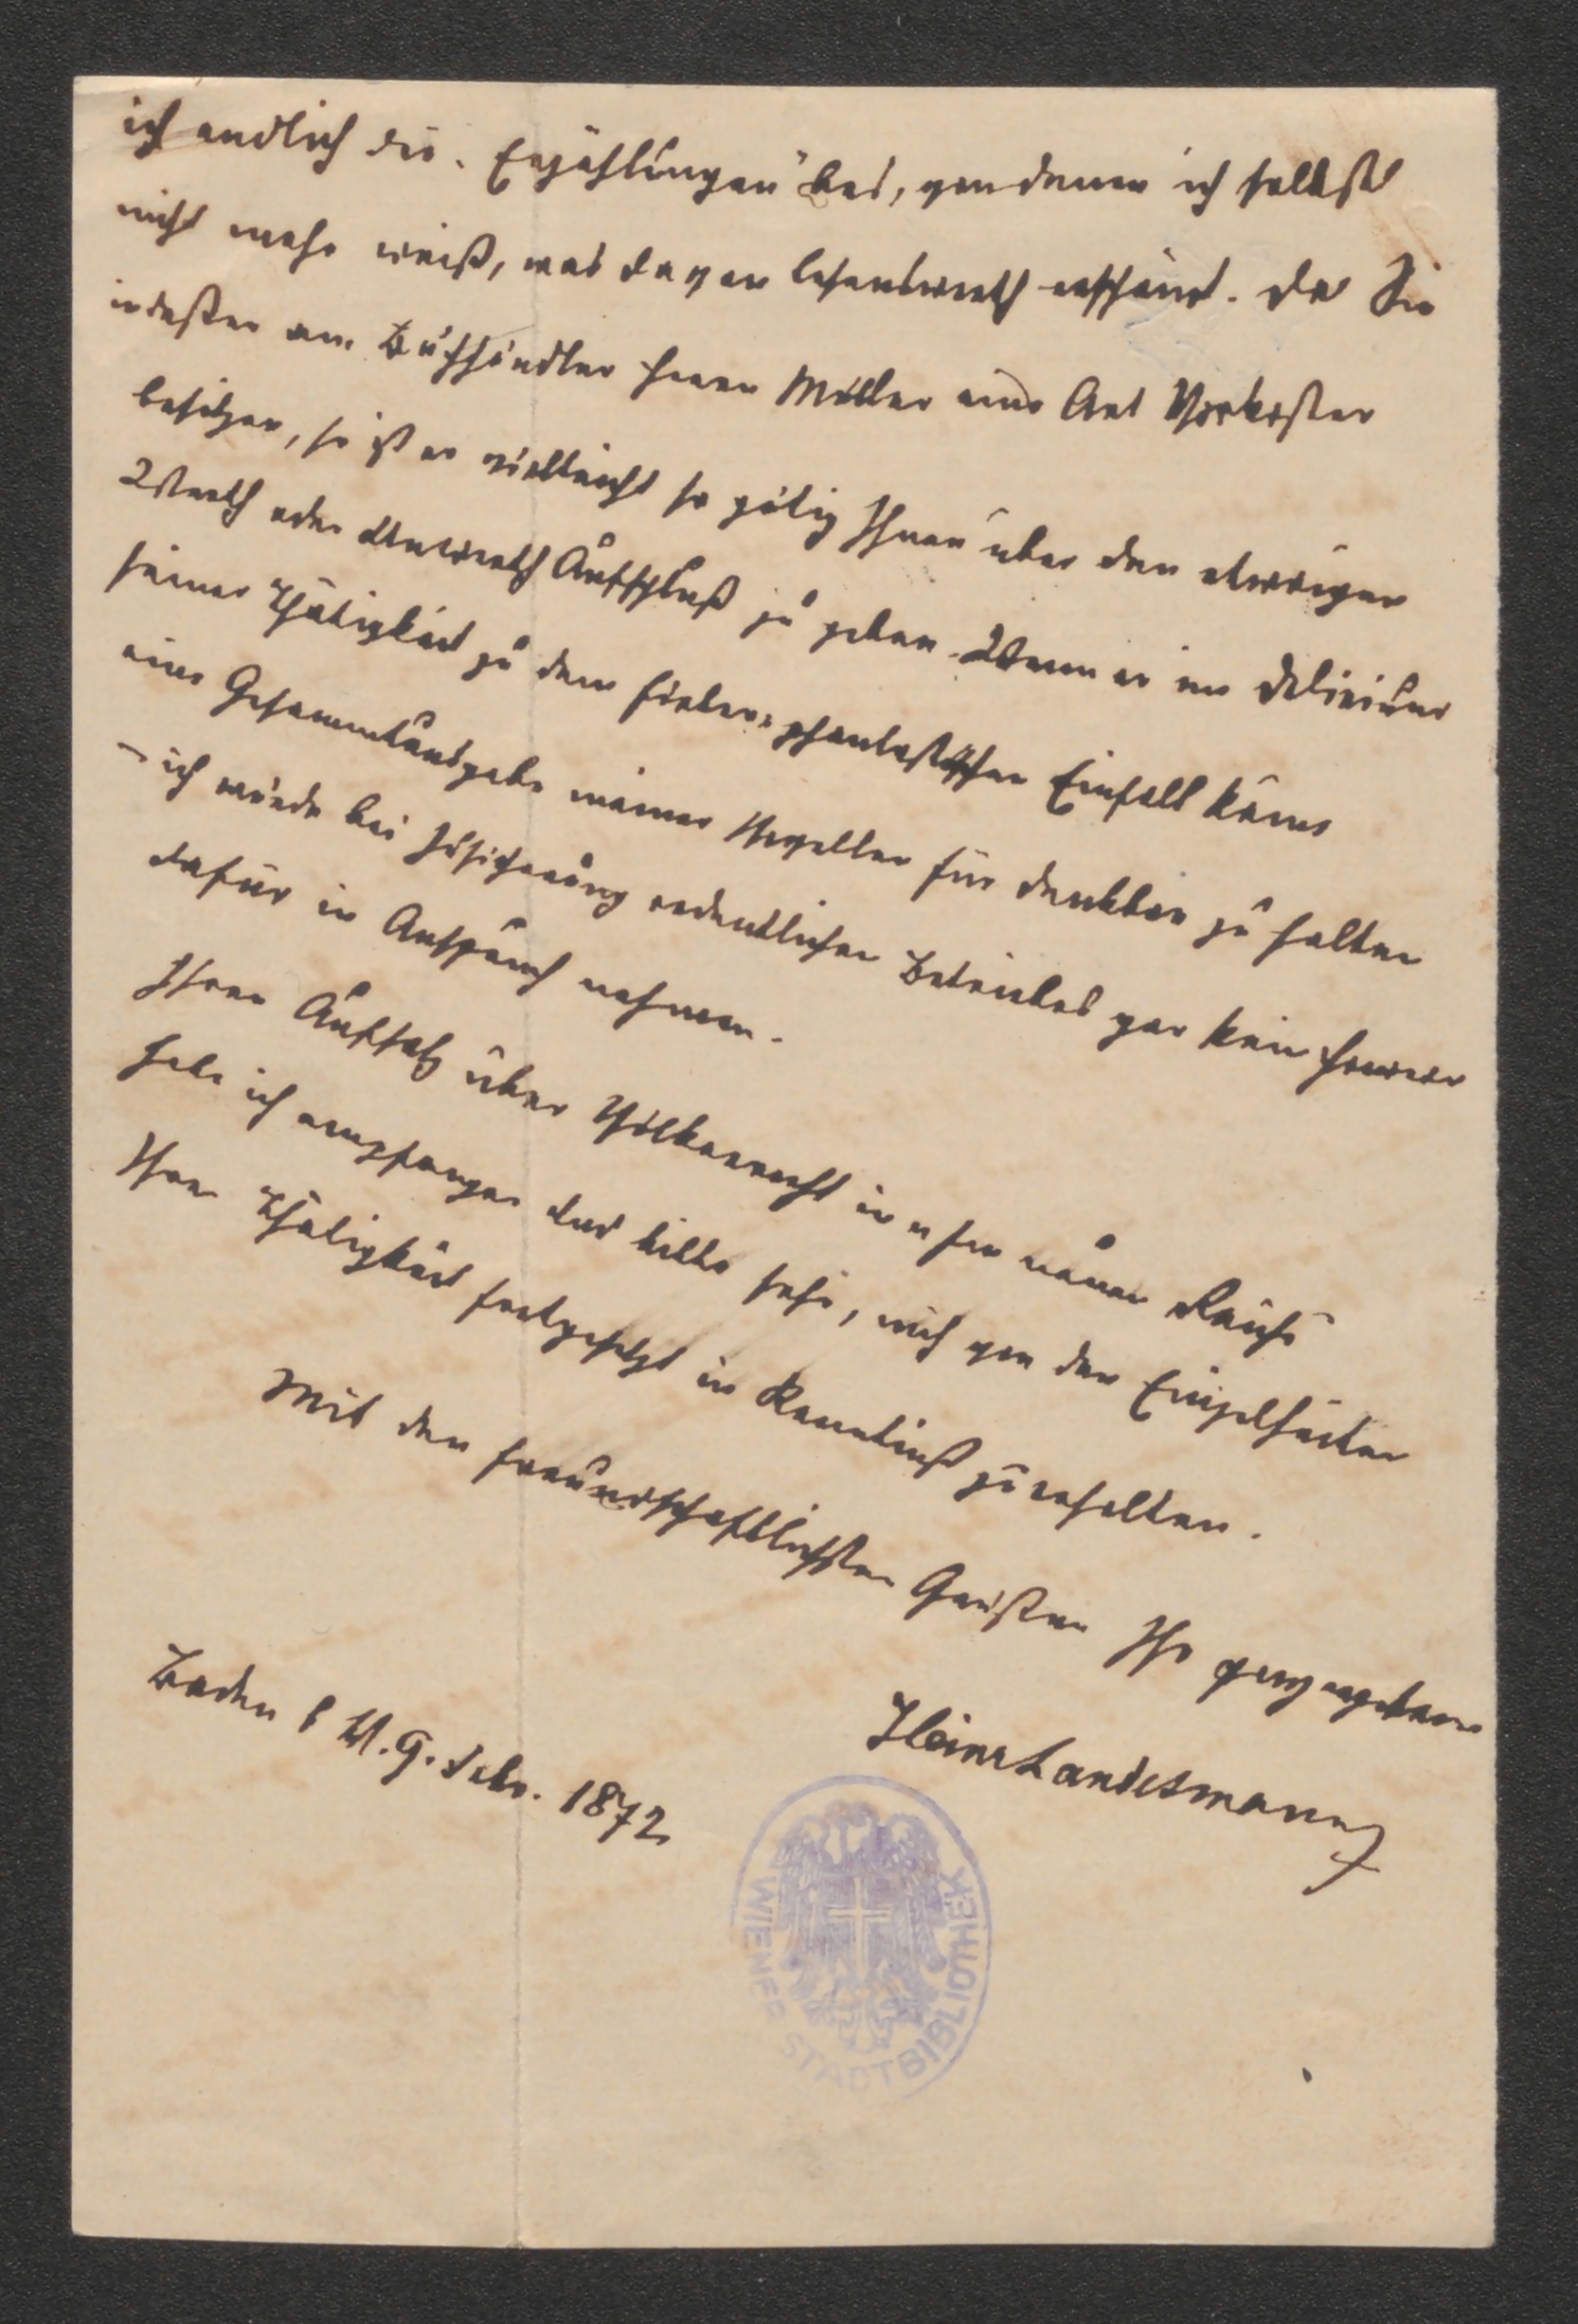 ich endlich die „Erzählungen“ bei, von denen ich selbst
nicht mehr weiß, was davon lesenswerth erscheint. Da Sie
indeßen am Buchhändler Herrn Müller eine Art Vorkoster
besitzen, so ist er vielleicht so gütig Ihnen über den etwaigen
Werth oder Unwerth Aufschluß zu geben. Wenn er im Delirium
seiner Thätigkeit zu dem fieber-phantastischen Einfall käme
eine Gesammtausgabe meiner Novellen für denkbar zu halten
– ich würde bei Zusicherung ordentlichen Betriebes gar kein Honorar
dafür in Anspruch nehmen.
Ihren Aufsatz über Völkerrecht in „Im neuen Reich“
habe ich empfangen und bitte sehr, mich von den Einzelheiten
Ihrer Thätigkeit fortgesetzt in Kenntniß zu erhalten.
Mit den freundschaftlichsten Grüßen Ihr ganz ergebener
Heinr Landesmann
Baden b W. 9. Febr. 1872
WIENER STADTBIBLIOTHEK